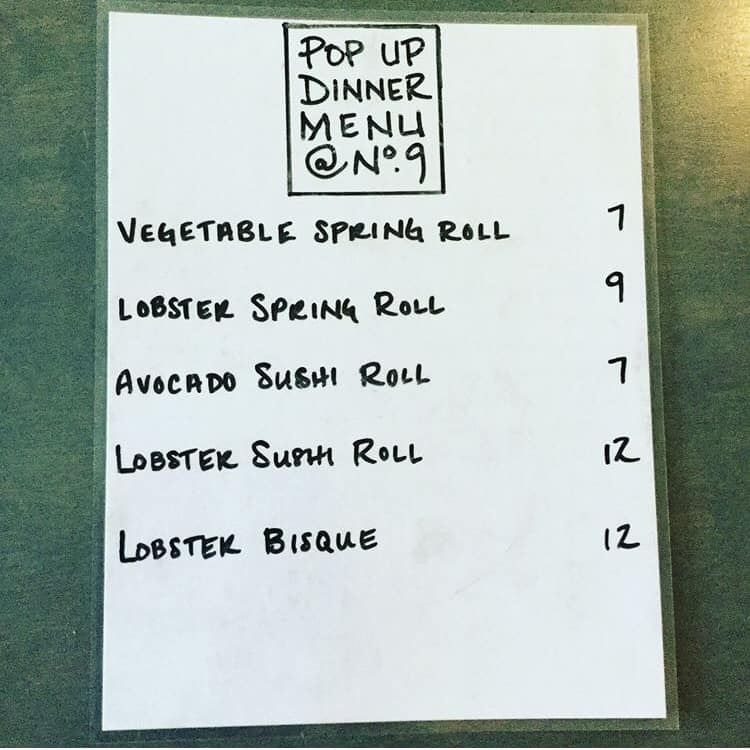 POP UP
DINNER
MENU
@ Nº.9
VEGETABLE SPRING ROLL 7
LOBSTER SPRING ROLL 9
AVOCADO SUSHI ROLL 7
LOBSTER SUSHI ROLL 12
LOBSTER BISQUE 12